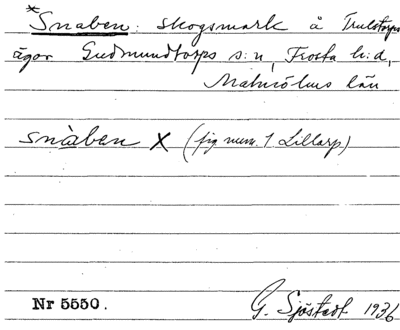 *Snaben: skogsmark å Trulstorps
ägor Gudmundtorps s:n, Frosta h:d,
Malmöhus län
snàben X (fig num. 1 Lillarp)
Nr 5550. G. Sjöstedt 1936